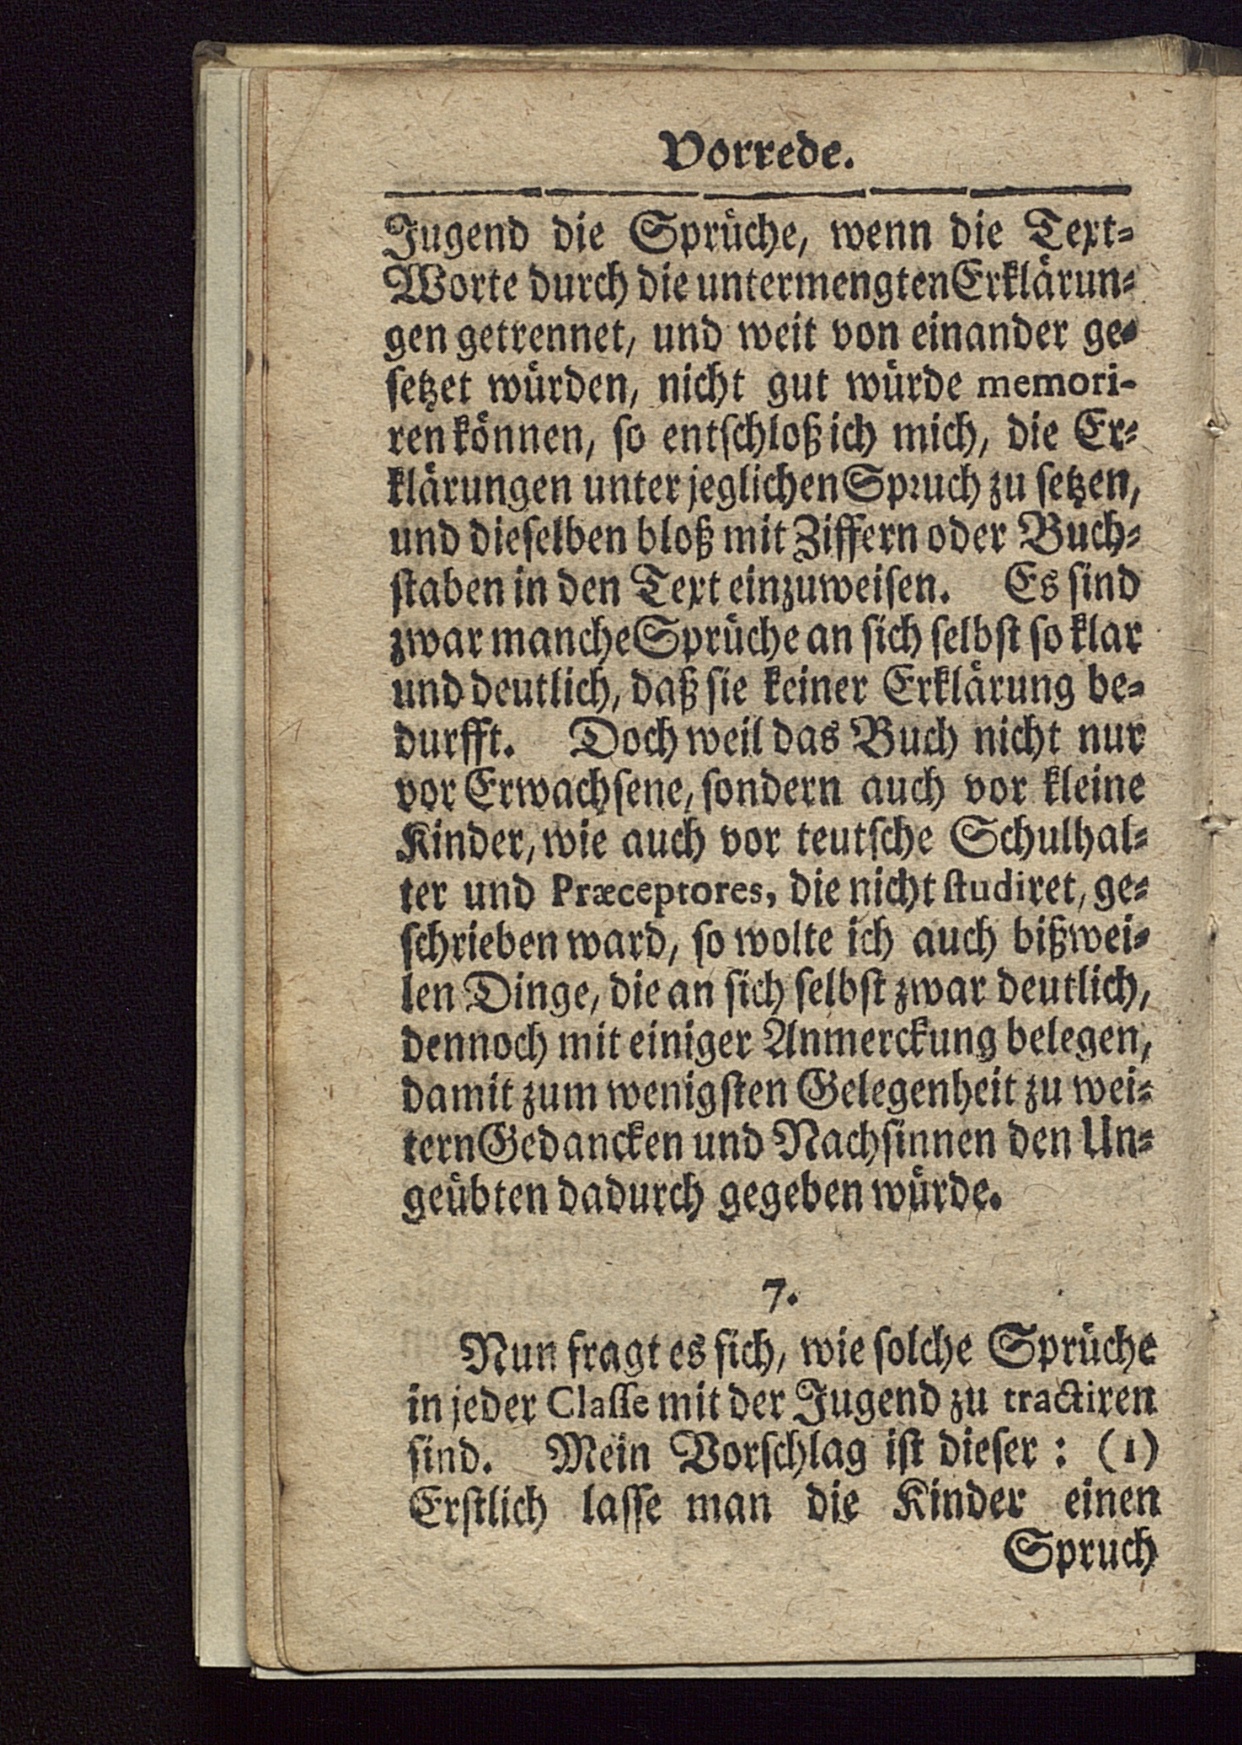 Vorrede.
Jugend die Sprüche, wenn die Text-
Worte durch die untermengten Erklärun-
gen getrennet, und weit von einander ge-
setzet würden, nicht gut würde memori-
ren können, so entschloß ich mich, die Er-
klärungen unter jeglichen Spruch zu setzen,
und dieselben bloß mit Ziffern oder Buch-
staben in den Text einzuweisen. Es sind
zwar manche Sprüche an sich selbst so klar
und deutlich, daß sie keiner Erklärung be-
durfft. Doch weil das Buch nicht nur
vor Erwachsene, sondern auch vor kleine
Kinder, wie auch vor teutsche Schulhal-
ter und Præceptores, die nicht studiret, ge-
schrieben ward, so wolte ich auch bißwei-
len Dinge, die an sich selbst zwar deutlich,
dennoch mit einiger Anmerckung belegen,
damit zum wenigsten Gelegenheit zu wei-
tern Gedancken und Nachsinnen den Un-
geübten dadurch gegeben würde.
7.
Nun fragt es sich, wie solche Sprüche
in jeder Classe mit der Jugend zu tractiren
sind. Mein Vorschlag ist dieser: (1)
Erstlich lasse man die Kinder einen
Spruch